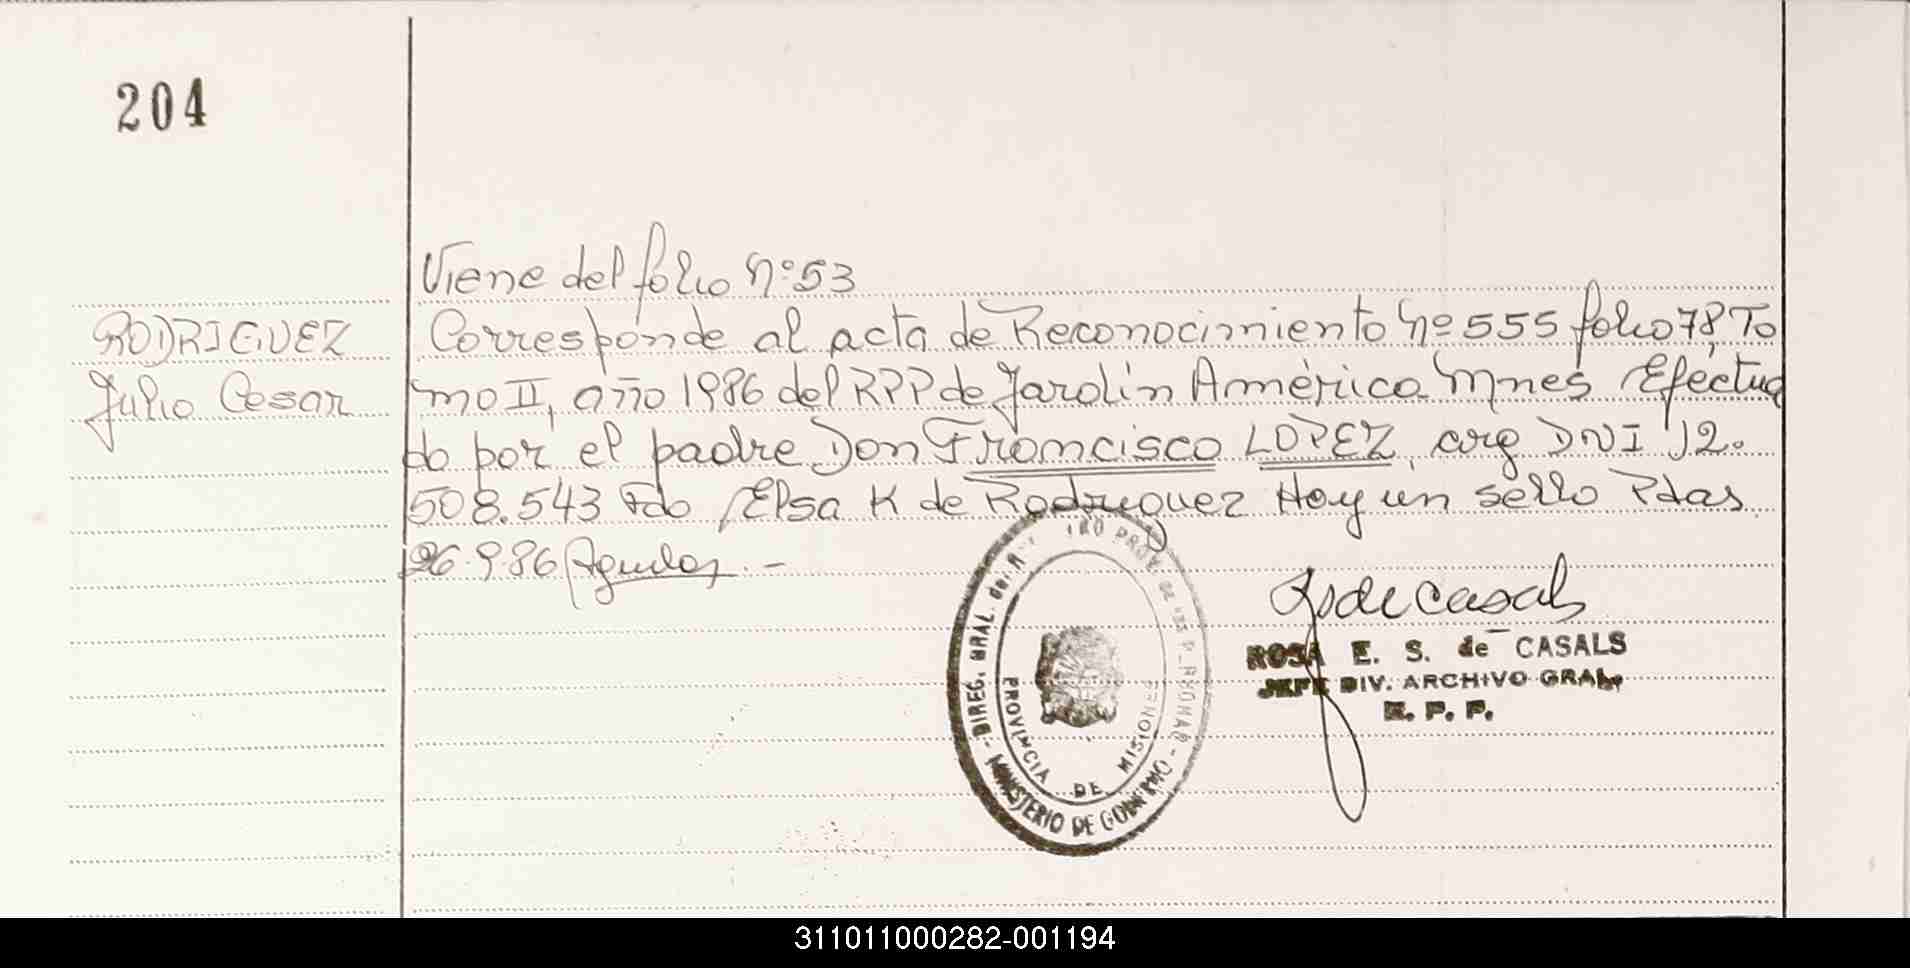 204
Viene del folio Nº 53
RODRIGUEZ
Julio Cesar
Corresponde al acta de Reconocimiento Nº 555 folio 78, To
mo II, año 1986 del RPP de Jardín América Mnes Efectua
do por el padre Don Francisco LOPEZ, arg DNI 12.
508.543 Fdo Elsa K de Rodriguez Hay un sello Pdas
26.9.86 Aguilar.-
Rosdecasals
ROSA E. S. de CASALS
JEFE DIV. ARCHIVO GRAL.
R. P. P.
DIREC. GRAL. del PROV. DE LAS P
MINISTERIO DE GOBIERNO
PROVINCIA DE MISIONES
311011000282-001194